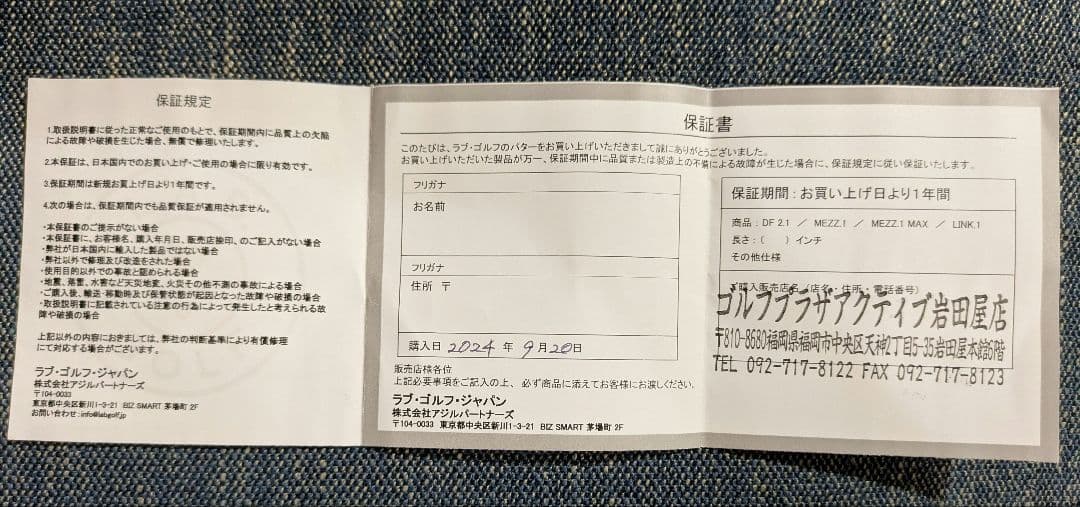 保証規定
1.取扱説明書に従った正常なご使用のもとで、保証期間内に品質上の欠陥
による故障や破損を生じた場合、無償で修理いたします。
2.本保証は、日本国内でのお買い上げ・ご使用の場合に限り有効です。
3.保証期間は新規お買上げ日より1年間です。
4.次の場合は、保証期間内でも品質保証が適用されません。
・本保証書のご提示がない場合
・本保証書に、お客様名、購入年月日、販売店捺印、のご記入がない場合
・弊社が日本国内に輸入した製品ではない場合
・弊社以外で修理及び改造をされた場合
・使用目的以外での事故と認められる場合
・地震、落雷、水害など天災地変、火災その他不測の事故による場合
・ご購入後、輸送・移動時及び保管状態が起因となった故障や破損の場合
・取扱説明書に記載されている注意の行為によって発生したと考えられる故
障や破損の場合
上記以外の内容におきましては、弊社の判断基準により有償修理
にて対応する場合がございます。
ラブ・ゴルフ・ジャパン
株式会社アジルパートナーズ
〒104-0033
東京都中央区新川1-3-21 BIZ SMART 茅場町 2F
お問い合わせ:info@labgolf.jp
保証書
このたびは、ラブ・ゴルフのパターをお買い上げいただきまして誠にありがとうございました。
お買い上げいただいた製品が万一、保証期間中に品質または製造上の不備による故障が生じた場合に、保証規定に従い保証いたします。
フリガナ
お名前
フリガナ
住所 〒
購入日 2024 年 9月20日
販売店様各位
上記必要事項をご記入の上、必ず商品に添えてお客様にお渡しください。
ラブ・ゴルフ・ジャパン
株式会社アジルパートナーズ
〒104-0033 東京都中央区新川1-3-21 BIZ SMART 茅場町 2F
保証期間:お買い上げ日より1年間
商品:DF 2.1 / MEZZ.1 / MEZZ.1 MAX / LINK.1
長さ:( )インチ
その他仕様
ご購入販売店名(店名・住所・電話番号)
ゴルフプラザアクティブ岩田屋店
〒810-8680福岡県福岡市中央区天神2丁目5-35岩田屋本館6階
TEL 092-717-8122 FAX 092-717-8123